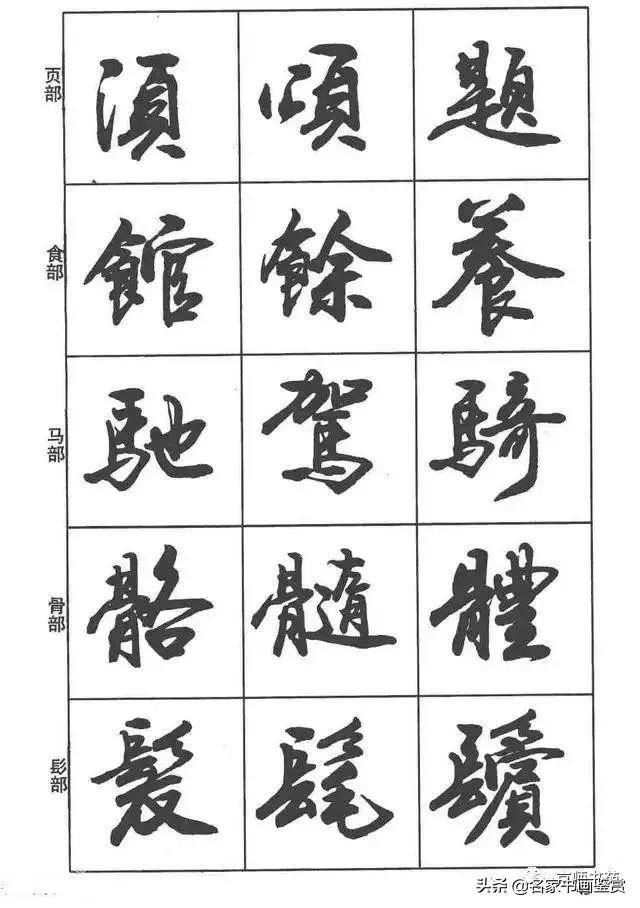 页部 須 頌 題
食部 館 餘 養
马部 馳 駕 騎
骨部 骼 髓 體
髟部 髮 髦 鬢
头条 @名家书画鉴赏